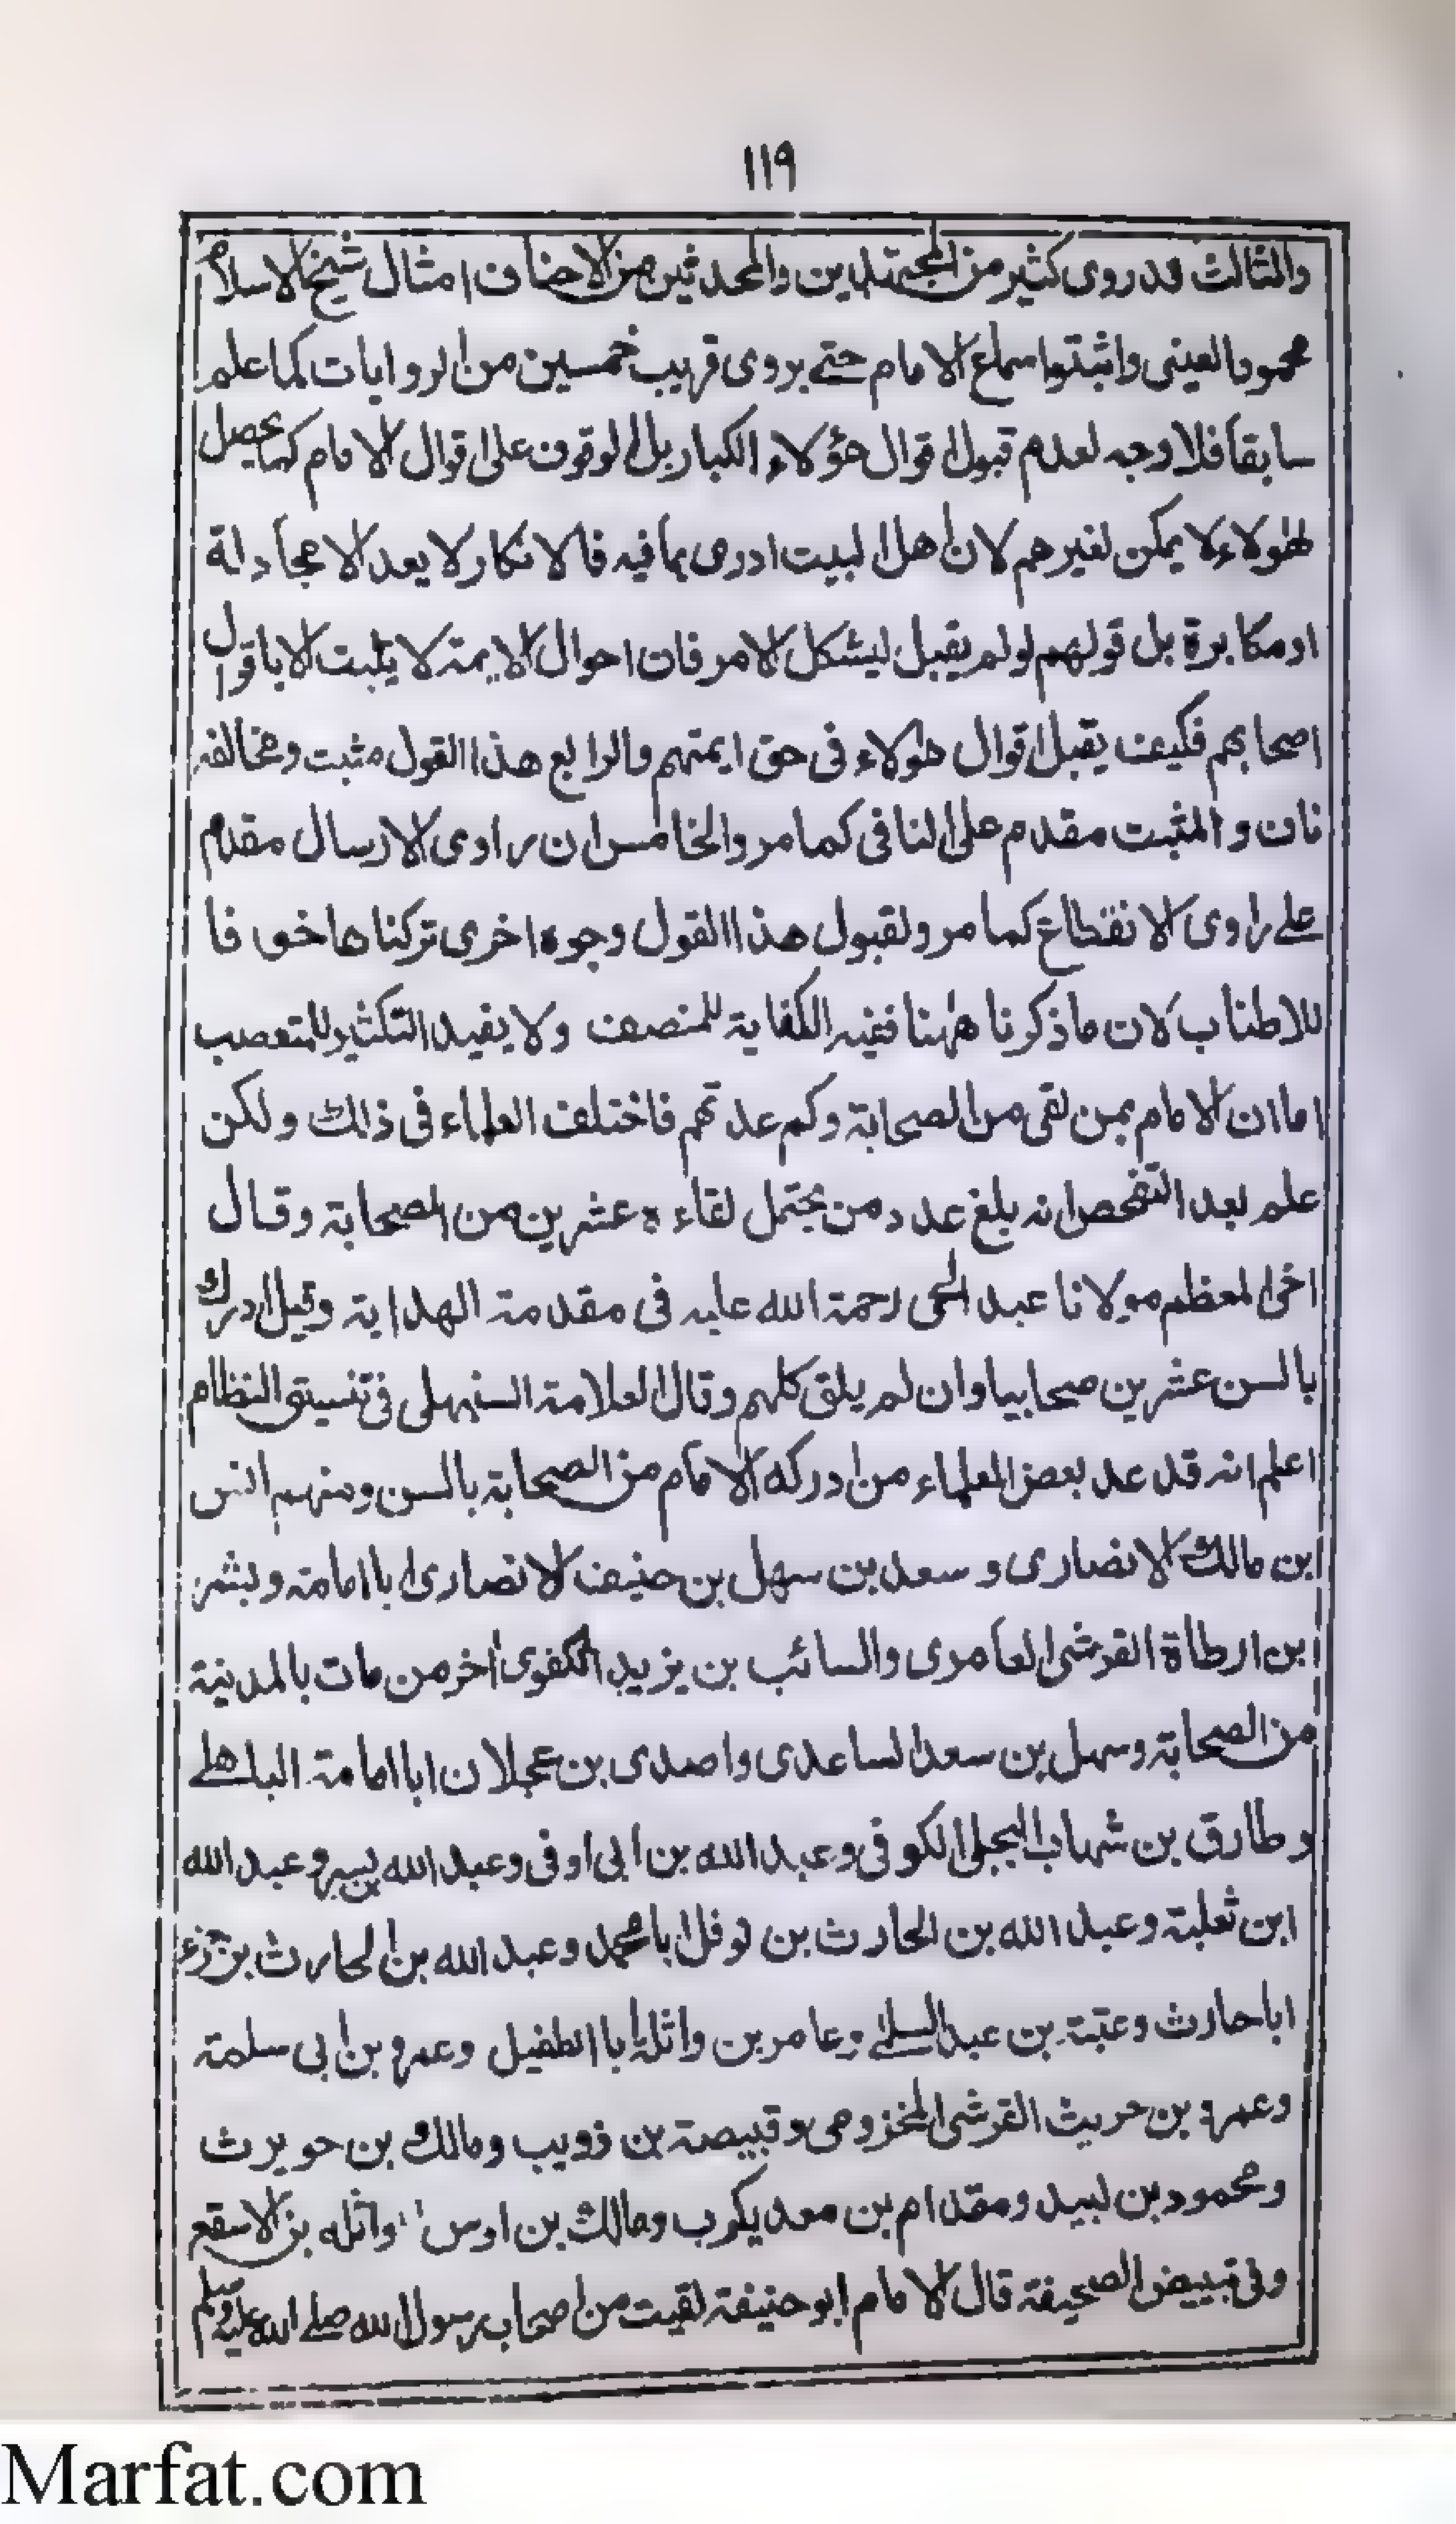 ١١٩
والثالث قد روى كثير من المجتهدين والمحدثين من الاحناف امثال شيخ الاسلام
محمود العينى واثبتوا سماع الامام حتے يروى قريب خمسين من الروايات كما علم
سابقا فلا وجه لعدم قبول اقوال هؤلاء الكبار بل الوقوف على اقوال الامام كما يحصل
لهولاء لا يمكن لغيرهم لان اهل البيت ادرى بما فيه فالانكار لا يعد الا مجادلة
او مكابرة بل قولهم لو لم يقبل ليشكل الامر فان احوال الايمة لا يثبت الا باقوال
اصحابهم فكيف يقبل اقوال هولاء فى حق ايمتهم والرابع هذا القول مثبت ومخالفه
ناف والمثبت مقدم على النافى كما مر والخامس ان راوى الارسال مقدم
علے راوى الانقطاع كما مر ولقبول هذا القول وجوه اخرى تركناها خوفا
للاطناب لان ما ذكرنا ههنا ففيه الكفاية للمنصف ولا يفيد التكثير للمتعصب
اما ان الامام بمن لقى من الصحابة وكم عدتهم فاختلف العلماء فى ذالك ولكن
علم بعد التفحص انه بلغ عدد من يحتمل لقاءه عشرين من الصحابة وقال
اخى المعظم مولانا عبد الحى رحمة الله عليه فى مقدمة الهداية وقيل ادرك
بالسن عشرين صحابيا وان لم يلق كلهم وقال العلامة السنبهلى فى تنسيق النظام
اعلم انه قد عد بعض العلماء من ادركه الامام من الصحابة بالسن ومنهم انس
ابن مالك الانصارى و سعد بن سهل بن حنيف الانصارى ابا امامة وبشر
بن ارطاة القرشى العامرى والسائب بن يزيد الكفوى اخر من مات بالمدينة
من الصحابة وسهل بن سعد الساعدى واصدى بن عجلان ابا امامة الباهلے
و طارق بن شهاب البجلى الكوفى وعبد الله بن ابى اوفى وعبد الله بن بسر وعبد الله
ابن ثعلبة وعبد الله بن الحارث بن نوفل ابا محمد وعبد الله بن الحارث بن جزء
ابا حارث وعتبة بن عبد السلمے وعامر بن واثلة ابا الطفيل وعمرو بن ابى سلمة
وعمرو بن حريث القرشى المخزومى وقبيصة بن ذويب ومالك بن حويرث
ومحمود بن لبيد ومقدام بن معد يكرب ومالك بن اوس واثله بن الاسقع
وفى تبييض الصحيفة قال الامام ابو حنيفة لقيت من اصحاب رسول الله صلے الله عليه وسلم
Marfat.com